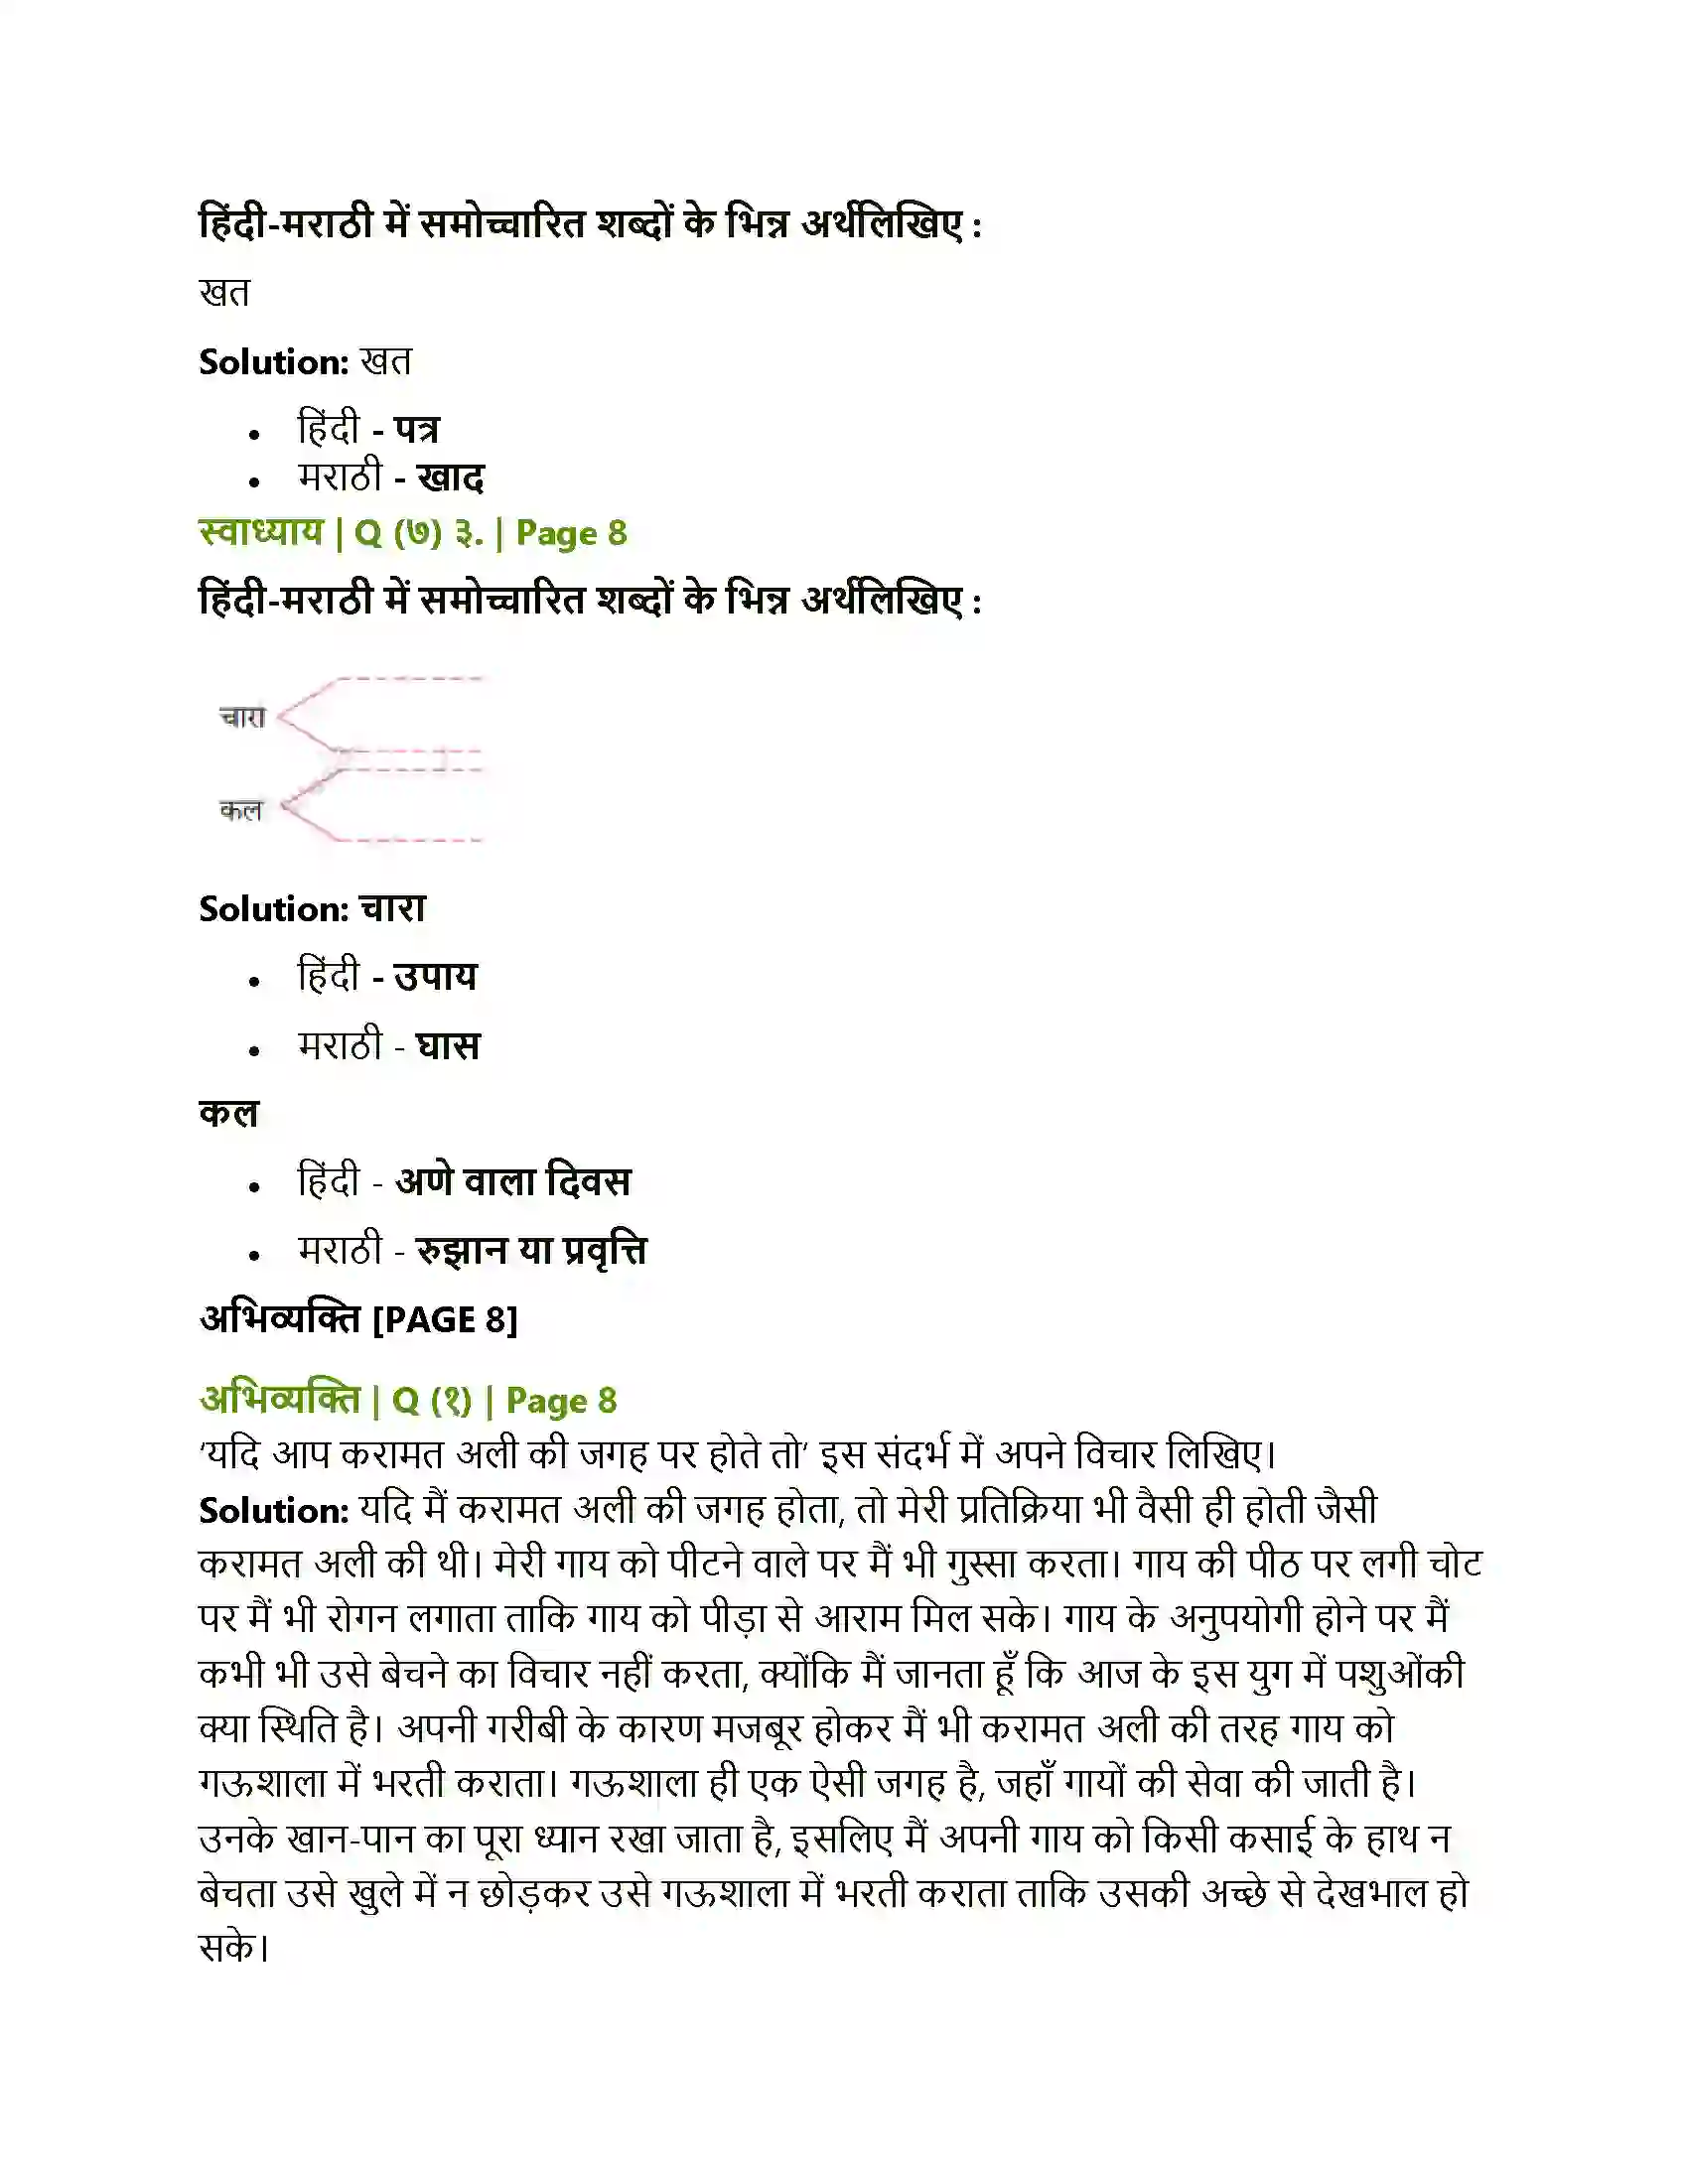 हिंदी-मराठी में समोच्चारित शब्दों के भिन्न अर्थलिखिए :
खत
Solution: खत
• हिंदी - पत्र
• मराठी - खाद
स्वाध्याय | Q (७) ३. | Page 8
हिंदी-मराठी में समोच्चारित शब्दों के भिन्न अर्थलिखिए :
चारा
कल
Solution: चारा
• हिंदी - उपाय
• मराठी - घास
कल
• हिंदी - अणे वाला दिवस
• मराठी - रुझान या प्रवृत्ति
अभिव्यक्ति [PAGE 8]
अभिव्यक्ति | Q (१) | Page 8
‘यदि आप करामत अली की जगह पर होते तो’ इस संदर्भ में अपने विचार लिखिए।
Solution: यदि मैं करामत अली की जगह होता, तो मेरी प्रतिक्रिया भी वैसी ही होती जैसी
करामत अली की थी। मेरी गाय को पीटने वाले पर मैं भी गुस्सा करता। गाय की पीठ पर लगी चोट
पर मैं भी रोगन लगाता ताकि गाय को पीड़ा से आराम मिल सके। गाय के अनुपयोगी होने पर मैं
कभी भी उसे बेचने का विचार नहीं करता, क्योंकि मैं जानता हूँ कि आज के इस युग में पशुओंकी
क्या स्थिति है। अपनी गरीबी के कारण मजबूर होकर मैं भी करामत अली की तरह गाय को
गऊशाला में भरती कराता। गऊशाला ही एक ऐसी जगह है, जहाँ गायों की सेवा की जाती है।
उनके खान-पान का पूरा ध्यान रखा जाता है, इसलिए मैं अपनी गाय को किसी कसाई के हाथ न
बेचता उसे खुले में न छोड़कर उसे गऊशाला में भरती कराता ताकि उसकी अच्छे से देखभाल हो
सके।